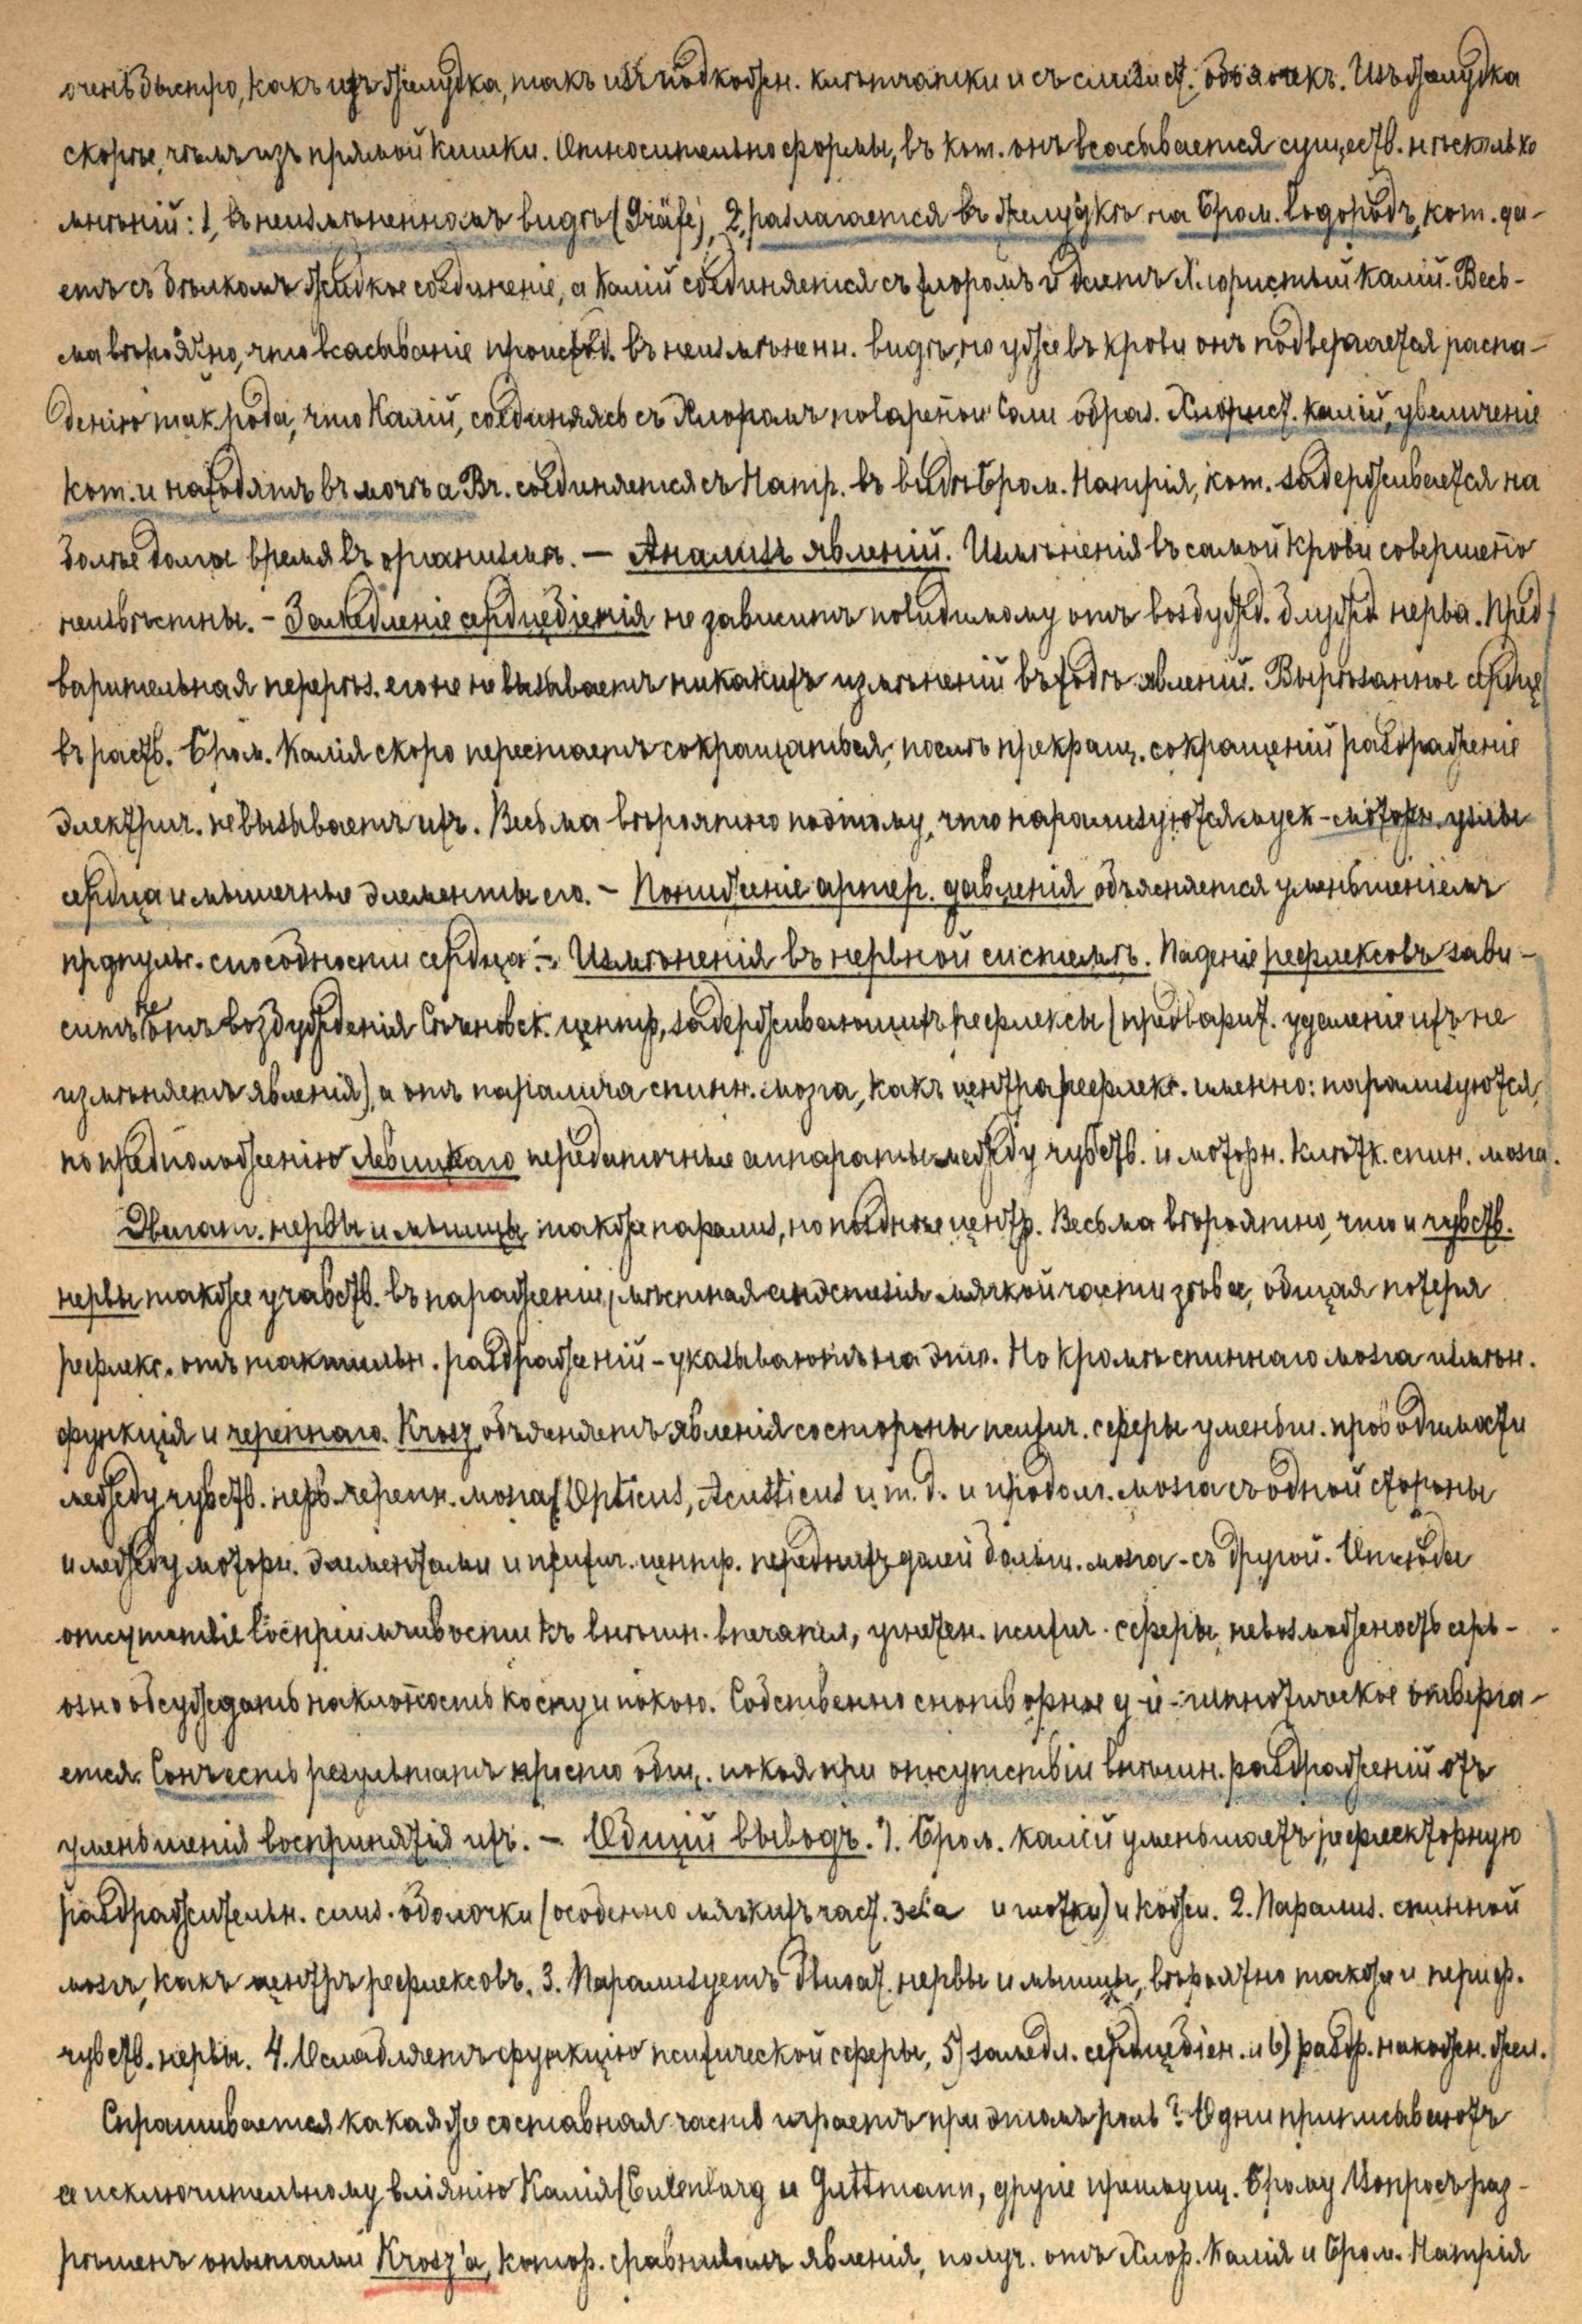 очень быстро, какъ изъ желудка, такъ изъ подкожн. клѣтчатки и съ слизист. оболочекъ. Изъ желудка
скорѣе, чѣмъ изъ прямой кишки. Относительно формы, въ кот. онъ всасывается существ. нѣсколько
мнѣній: 1, въ неизмѣненномъ видѣ (Gräfe), 2, разлагается въ желудкѣ на Бром. водородъ, кот. да-
етъ съ бѣлкомъ жидкое соединеніе, а Калій соединяется съ хлоромъ и даетъ Хлористый калій. Весь-
ма вѣроятно, что всасываніе происход. въ неизмѣненн. видѣ, но уже въ крови онъ подвергается распа-
денію так. рода, что Калій, соединяясь съ Хлоромъ поваренной Соли образ. Хлорист. калій, увеличеніе
кот. и находятъ въ мочѣ а Br. соединяется съ Натр. въ видѣ Бром. Натрія, кот. задерживается на
болѣе долгое время въ организмѣ. — Анализъ явленій. Измѣненія въ самой крови совершенно
неизвѣстны. – Замедленіе сердцебіенія не зависитъ повидимому отъ возбужд. блужд. нерва. Пред
варительная перерѣз. его не вызываетъ никакихъ измѣненій въ ходѣ явленій. Вырѣзанное сердце
въ раств. Бром. Калія скоро перестаетъ сокращаться; послѣ прекращ. сокращеній раздраженіе
электрич. не вызываетъ ихъ. Весьма вѣроятно поэтому, что парализуются муск-моторн. узлы
сердца и мышечные элементы его. – Пониженіе артер. давленія объясняется уменьшеніемъ
пропульс. способности сердца. – Измѣненія въ нервной системѣ. Паденіе рефлексовъ зави-
ситъ не отъ возбужденія Сѣченовск. центр, задерживающихъ рефлексы (предварит. удаленіе ихъ не
измѣняетъ явленія), а отъ паралича спинн. мозга, какъ центра рефлекс. именно: парализуются,
по предположенію Левицкаго передаточные аппараты между чувств. и моторн. клѣтк. спин. мозга.
Двигат. нервы и мышцы также парализ, но позднѣе центр. Весьма вѣроятно, что и чувств.
нервы также участв. въ пораженіи, мѣстная анэстезія мягкой части зѣва, общая потеря
рефлекс. отъ тактильн. раздраженій – указываютъ на это. Но кромѣ спиннаго мозга измѣн.
функція и черепнаго. Krosz объясняетъ явленія со стороны психич. сферы уменьш. проводимости
между чувств. нерв. черепн. мозга (Opticus, Acusticus и т. д. и продолг. мозга съ одной стороны
и между моторн. элементами и психич. центр. переднихъ долей больш. мозга – съ другой. Отсюда
отсутствіе воспріимчивости къ внѣшн. впечатл, угнетен. психич. сферы, невозможность серь-
озно обсуждать наклонность ко сну и покою. Собственно снотворное д-іе - гипнотическое отверга-
ется. Сонъ есть результатъ просто общ. покоя при отсутствіи внѣшн. раздраженій отъ
уменьшенія воспринятія ихъ. – Общій выводъ. 1. Бром. калій уменьшаетъ рефлекторную
раздражительн. слиз. оболочки (особенно мягкихъ част. зева и глотки) и кожи. 2. Парализ. спинной
мозгъ, какъ центръ рефлексовъ. 3. Парализуетъ двигат. нервы и мышцы, вѣроятно также и периф.
чувств. нервы. 4. Ослабляетъ функцію психической сферы, 5) замедл. сердцебіен. и 6) раздр. накожн. жел.
Спрашивается какая же составная часть играетъ при этомъ роль? Одни приписываютъ
исключительному вліянію Калія (Eulenburg и Guttmann, другіе преимущ. Брому Вопросъ раз-
рѣшенъ опытами Krosz'a, котор. сравнивалъ явленія, получ. отъ Хлор. Калія и Бром. Натрія